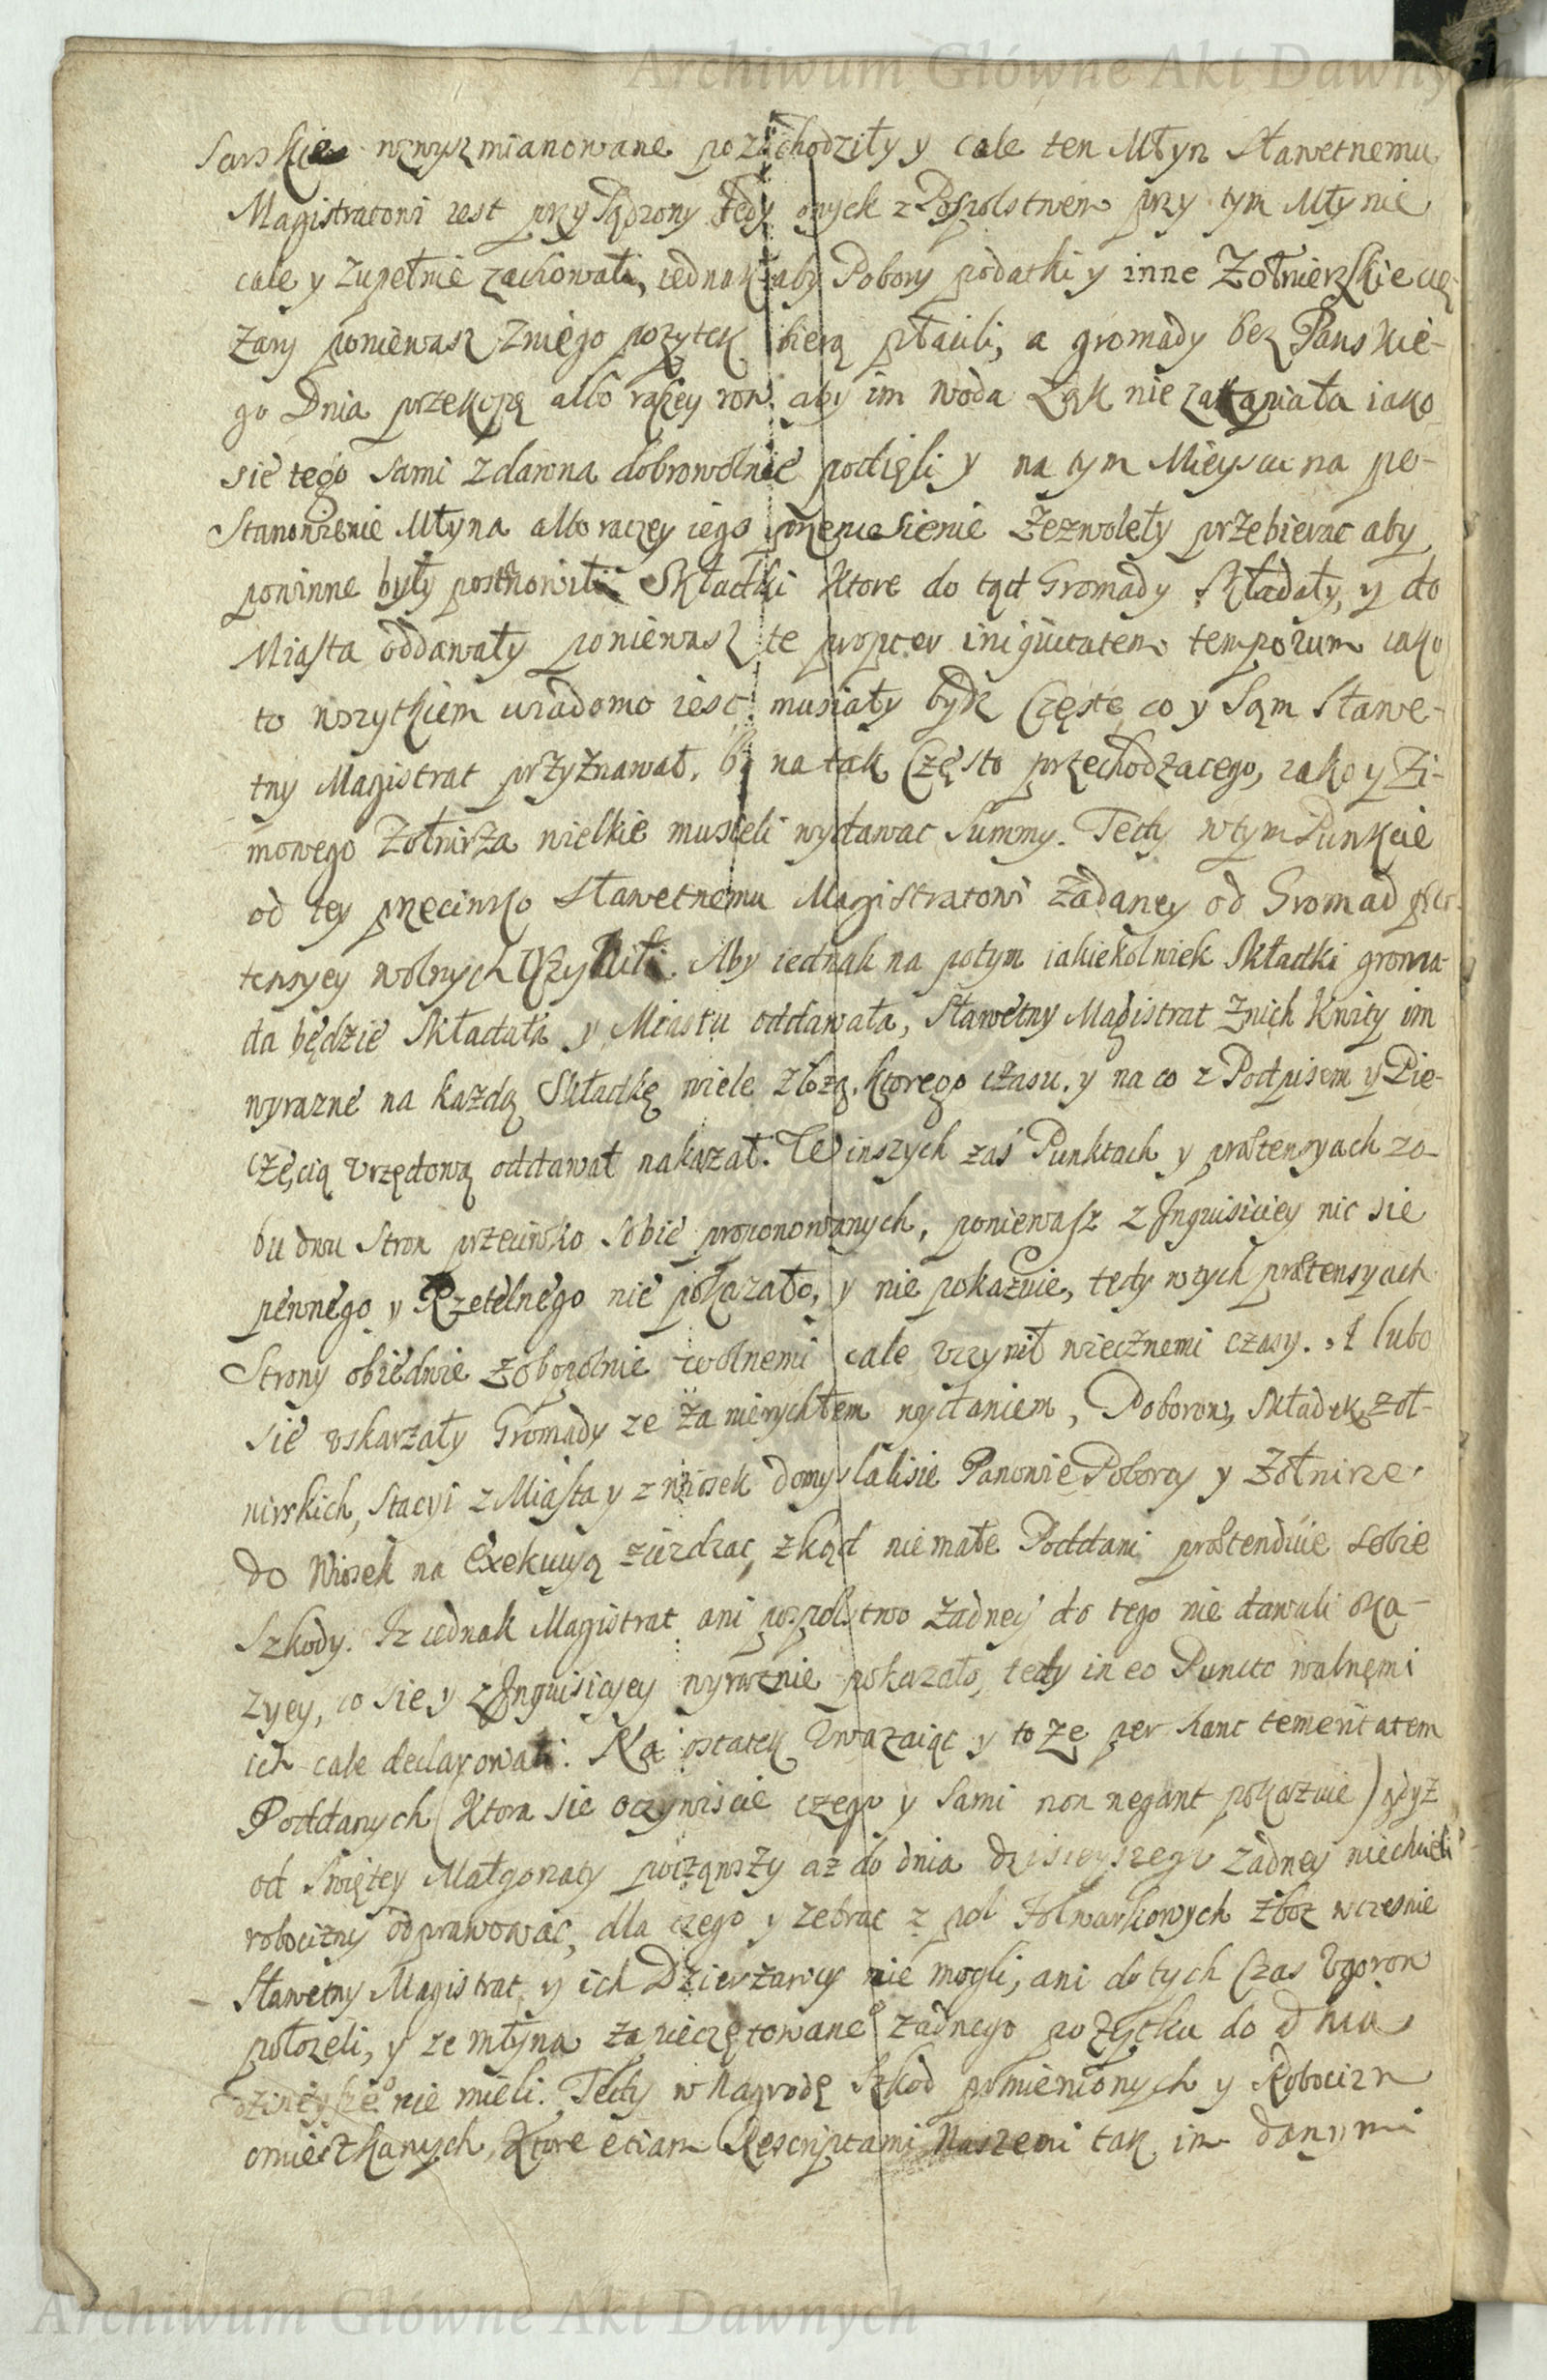 Archiwum Główne Akt Dawnych
sarskie wzwysz mianowane pozachodziły y cale ten Młyn Sławetnemu
Magistratowi iest przysądzony tedy onych z Pospolstwem przy tym Młynie
cale y zupełnie zachowali, iednak aby Pobory podatki y inne Zołnierskie cię-
zary poniewasz zniego pozytek bierą płacili, a gromady bez Panskie-
go Dnia przekopę albo raczey row, aby im woda Łąk nie zatapiała iako
sie tego sami zdawna dobrowolnie podięli y na tym Mieyscu na po-
stanowienie Młyna albo raczey iego przeniesienie zezwoleły przebierac aby
powinne były postanowili Składki ktore do tąd Gromady składały, y do
Miasta oddawały poniewasz te propter iniquitatem temporum iako
to wszytkiem wiadomo iest musiały bydz Częste co y sąm Sławe-
tny Magistrat przyznawał, bo na tak Często przechodzacego, iako y Zi-
mowego Zołnirza wielkie musieli wydawac summy. Tedy wtym Punkcie
od tey przeciwko Sławetnemu Magistratowi zadaney od Gromad prae-
tensyey wolnych Uczynili. Aby iednak na potym iakiekolwiek Składki groma-
da będzie składała y Miastu oddawała, Sławetny Magistrat znich Kwity im
wyrazne na kazdą Składkę wiele złozą, ktorego czasu, y na co z Podpisem y Pie-
częcią Vrzędową oddawał nakazał. W inszych zas Punktach y praetensyach zo-
bu dwu Stron przeciwko sobie proponowanych, poniewasz z Inquisiciey nic sie
pewnego y Rzetelnego nie pokazało, y nie pokazuie, tedy wtych praetensyach
Strony obiedwie zobopolnie wolnemi cale vczynił wiecznemi czasy. A lubo
sie vskarzały Gromady ze za nierychłem wydaniem, Poborow, składek zoł-
nirskich, Stacyi z Miasta y z wiosek domyslali sie Panowie Poborcy y Zołnirze
do Wiosek na Exekucyą ziezdzac, zkąd nie małe Poddani praetenduie sobie
Szkody. Iz iednak Magistrat ani pospolstwo zadney do tego nie dawali oka-
zyey, co sie y z Inquisicyey wyraznie pokazało, tedy in eo Puncto wolnemi
ich cale declarowali. Na ostatek Vwazaiąc y to ze per hanc temeritatem
Poddanych (ktora sie oczywiscie czego y sami non negant pokazuie) gdyz
od Swiętey Małgorzaty począwszy az do dnia dzisieyszego zadney niechcieli
robocizny odprawowac, dla czego y zebrac z pol folwarkowych zboz wczesnie
Sławetny Magistrat y ich Dzierzawcy nie mogli, ani do tych Czas Vgorow
połozeli, y ze młyna zapieczętowane° zadnego pozytku do dnia
dzisieysze° nie mieli. Tedy w Nagrodę szkod pomienionych y Robocizn
omieszkanych, ktore etiam Rescriptami Naszemi tak im danymi
Archiwum Główne Akt Dawnych